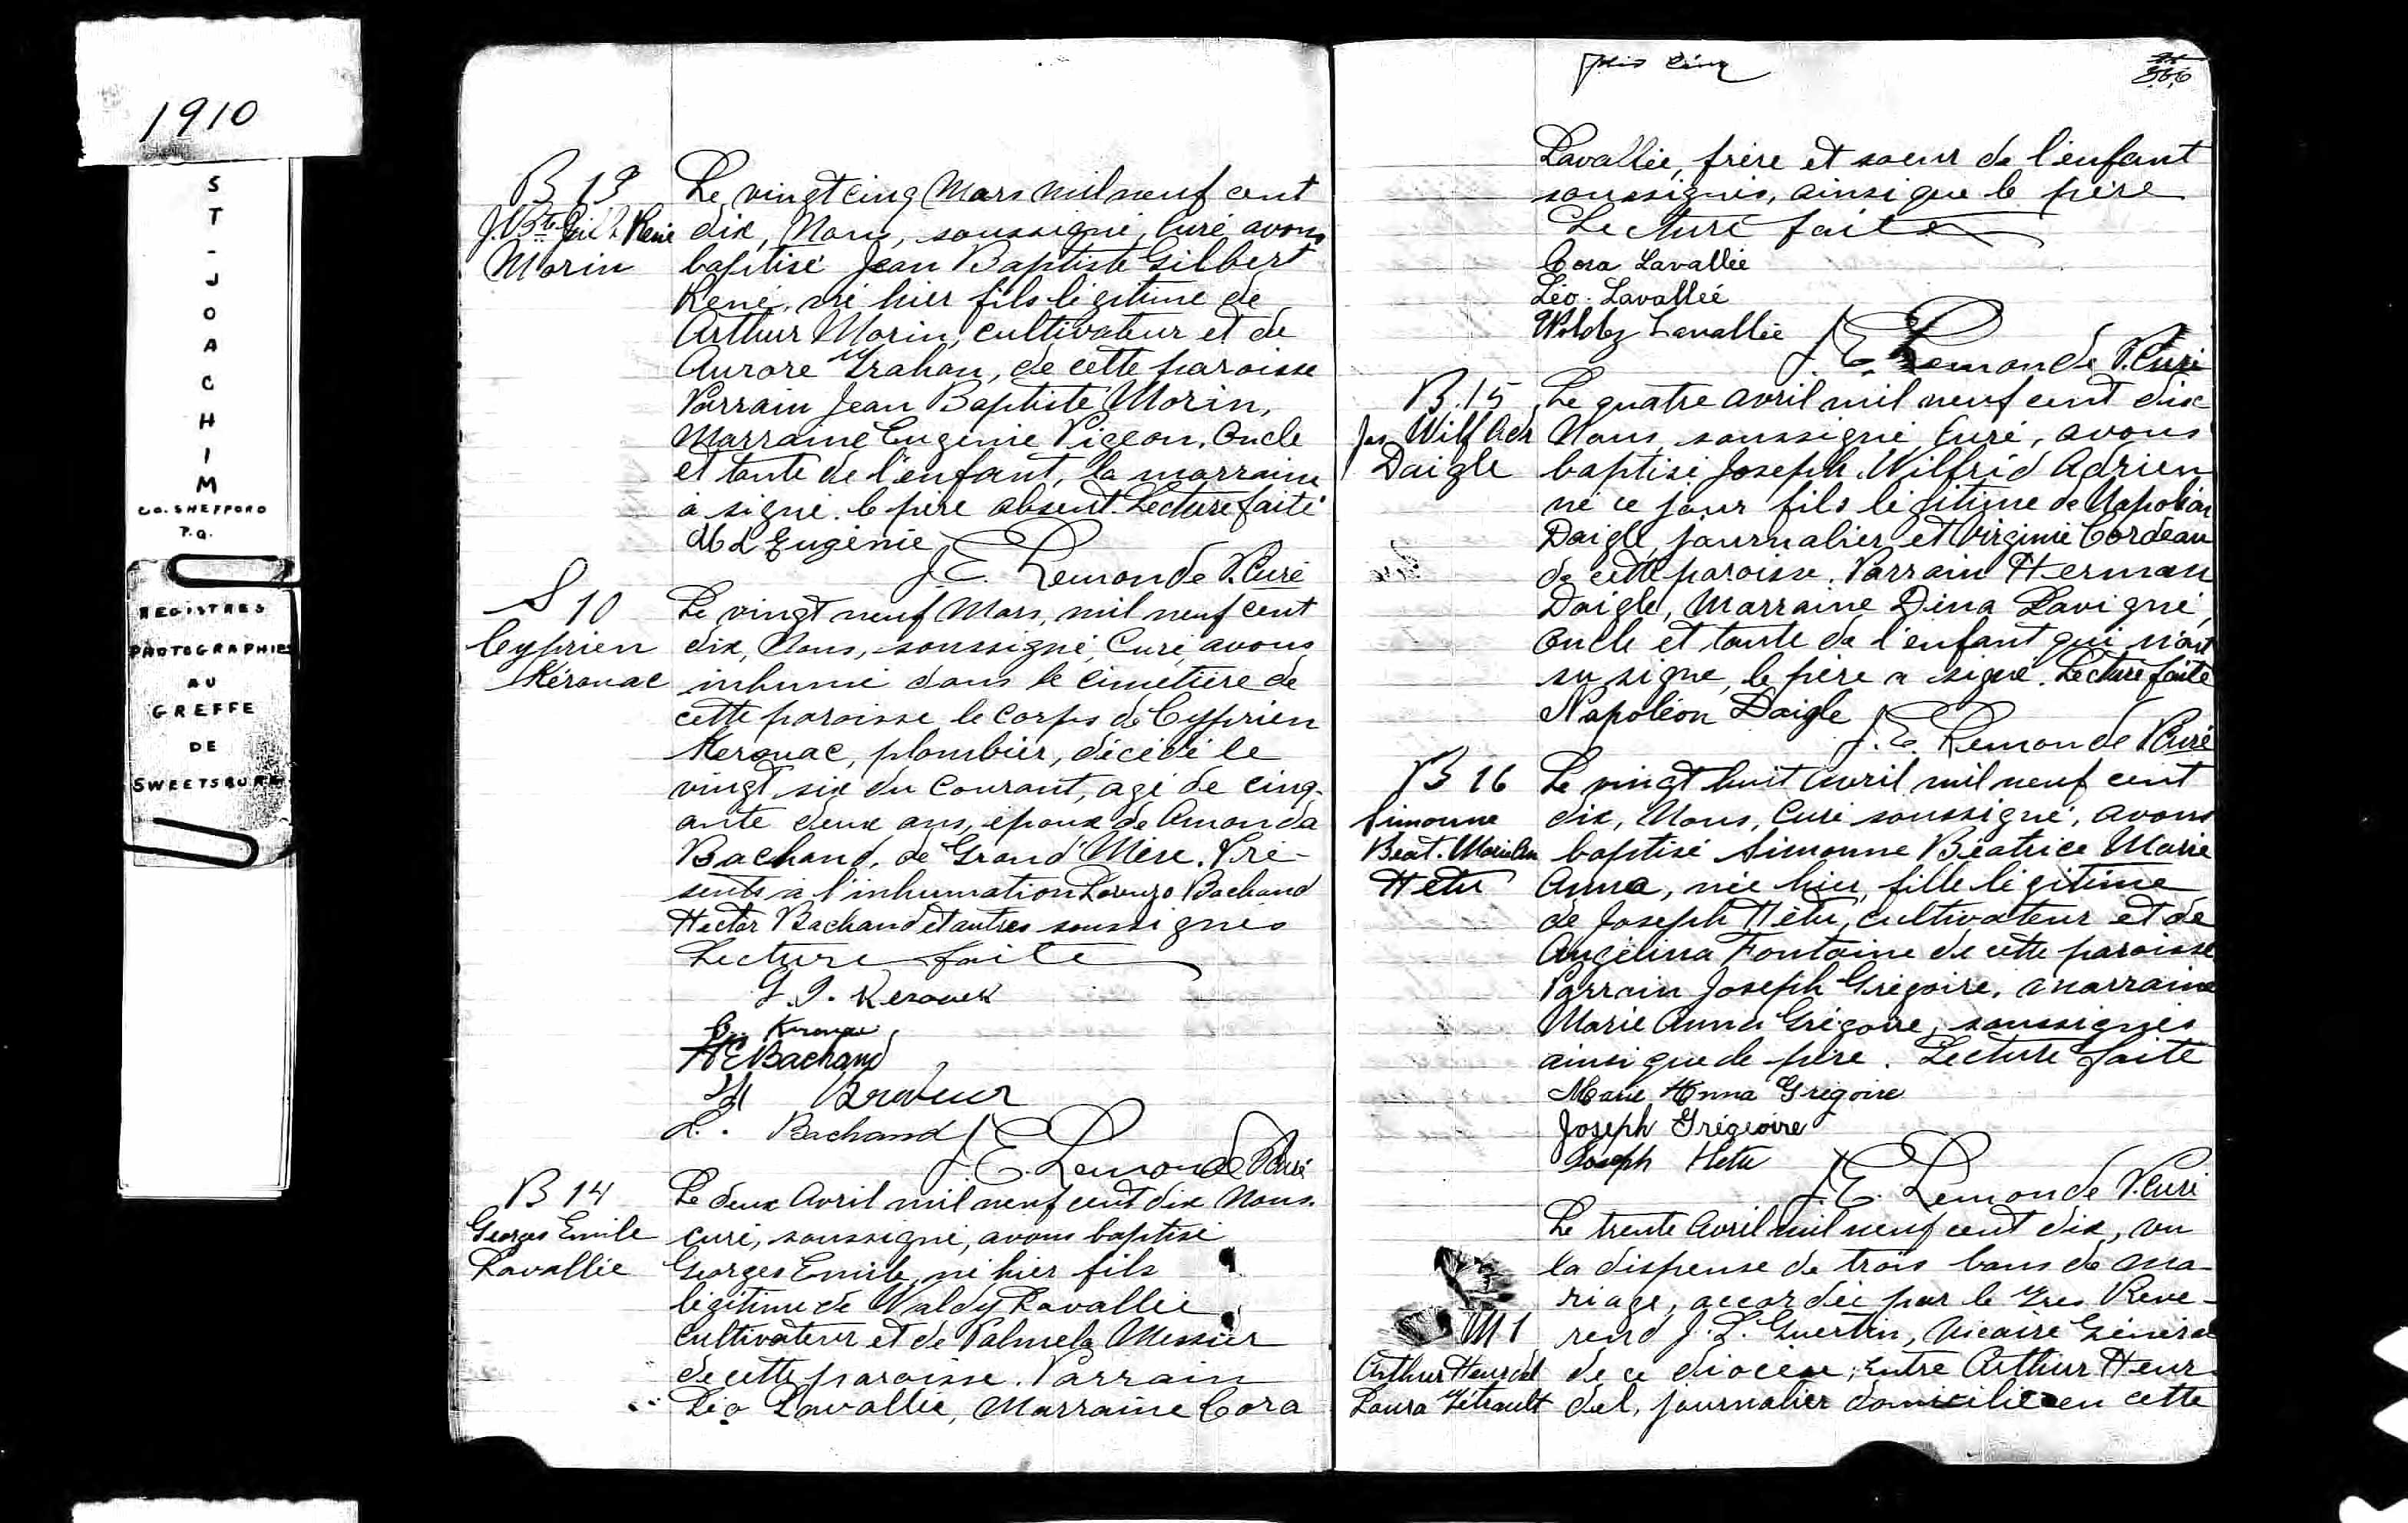 1910
ST-JOACHIM
CO. SHEFFORD
P.Q.
REGISTRES
PHOTOGRAPHIES
AU
GREFFE
DE
SWEETSBURG
B 13
J. Bte Gilb René
Morin
Le vingt cinq Mars mil neuf cent
dix, Nous, soussigné, Curé avons
baptisé Jean Baptiste Gilbert
René, né hier fils légitime de
Arthur Morin, cultivateur et de
Aurore Grahan, de cette paroisse
Parrain Jean Baptiste Morin,
Marraine Eugénie Pigeon, Oncle
et tante de l'enfant, la marraine
a signé. le père absent. Lecture faite
Eugénie
J. E. Lemonde P. Curé
S 10
Cyprien
Kérouac
Le vingt neuf Mars, mil neuf cent
dix, Nous, soussigné, Curé, avons
inhumé dans le cimetière de
cette paroisse le corps de Cyprien
Kerouac, plombier, décédé le
vingt six du courant, agé de cinq-
ante deux ans, époux de Amanda
Bachand, de Grand'Mère. Pré-
sents à l'inhumation Lorenzo Bachand
Hector Bachand et autres soussignés
Lecture faite
Kerouack
Kerouac
H E Bachand
L. Bachand
J. E. Lemonde P. Curé
B 14
Georges Emile
Lavallée
Le deux Avril mil neuf cent dix Nous.
curé, soussigné, avons baptisé
Georges Emile, né hier fils
légitime de Waldy Lavallée
cultivateur et de Palmela Messier
de cette paroisse. Parrain
Léo Lavallée, Marraine Cora
566
Lavallée, frère et soeur de l'enfant
soussignés, ainsi que le père
Lecture faite
Cora Lavallée
Léo. Lavalleé
Lavallée
J. E. Lemonde P. Curé
B. 15
Jos Wilf Adr
Daigle
Le quatre avril mil neuf cent dix
Nous soussigné Curé, avons
baptisé Joseph Wilfrid Adrien
né ce jour fils légitime de Napoléon
Daigle, journalier et Virginie Cordeau
de cette paroisse. Parrain Herman
Daigle, Marraine Dina Lavigne,
oncle et tante de l'enfant qui n'ont
su signe, le père a signé. Lecture faite
Napoléon Daigle
J. E. Lemonde P. Curé
B 16
Simonne
Béat. Marie An
Hétu
Le vingt huit avril mil neuf cent
dix, Nous, Curé soussigné, avons
baptisé Simonne Béatrice Marie
Anna, née hier, fille légitime
de Joseph Hétu, cultivateur et de
Angélina Fontaine de cette paroisse
Parrain Joseph Grégoire, marraine
Marie Anna Grégoire, soussignés
ainsi que le père. Lecture faite
Marie Anna Grégoire
Joseph Grégioire
Joseph Hetu
J. E. Lemonde P. Curé
M 1
Arthur Heurdel
Laura Tétrault
Le trente Avril mil neuf cent dix, vu
la dispense de trois bans de ma-
riage, accordée par le Très Reve-
rend J. L. Guertin, Vicaire Général
de ce diocèse; entre Arthur Heur
del, journalier domicilié en cette